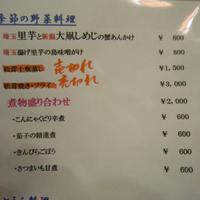 季節の野菜料理
埼玉里芋と新潟大凧しめじの蟹あんかけ ￥ 800
埼玉揚げ里芋の島味噌がけ ￥ 800
売切れ ￥1,500
焼き・フライ 売切れ ￥3,000
煮物盛り合わせ ￥2,000
・こんにゃくピリ辛煮 ￥ 600
・茄子の精進煮 ￥ 600
・きんぴらごぼう ￥ 600
・さつまいも甘煮 ￥ 600